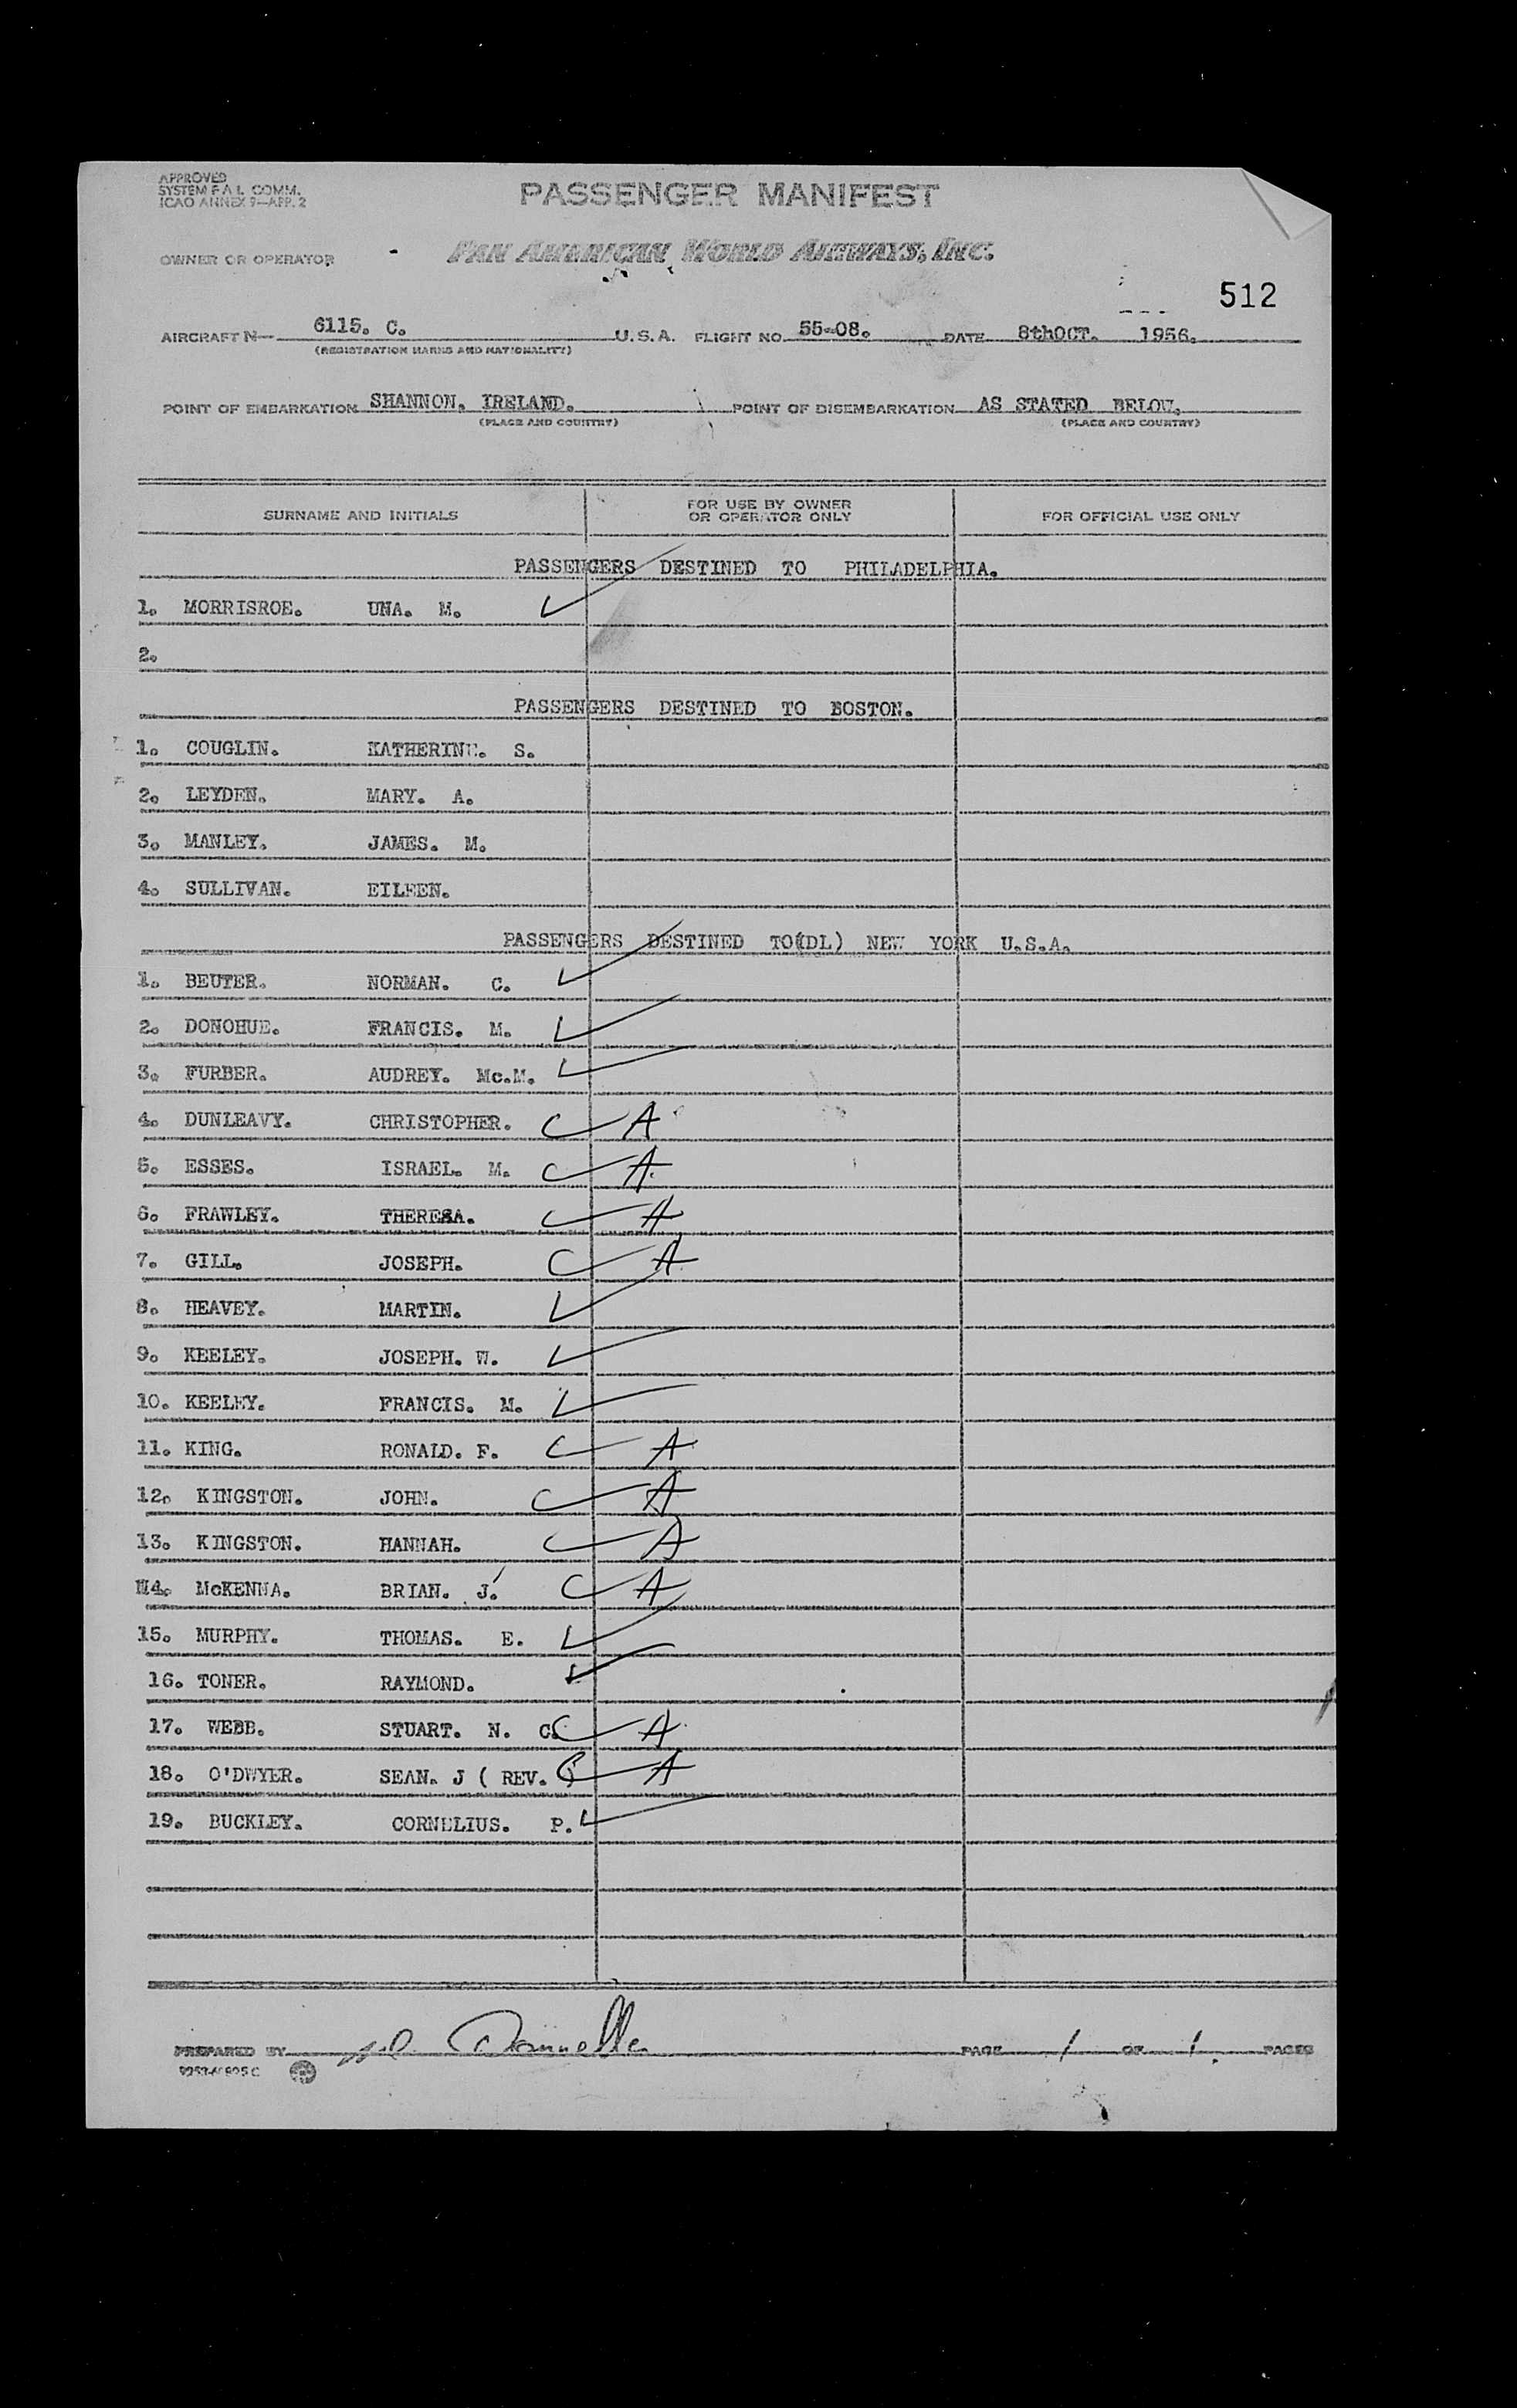 APPROVED
SYSTEM F A L COMM.
ICAO ANNEX 9—APP. 2
PASSENGER MANIFEST
OWNER OR OPERATOR - PAN AMERICAN WORLD AIRWAYS, INC.
512
AIRCRAFT N— 6115. C. U.S.A. FLIGHT NO 55-08. DATE 8thOCT. 1956.
(REGISTRATION MARKS AND NATIONALITY)
POINT OF EMBARKATION SHANNON. IRELAND. POINT OF DISEMBARKATION AS STATED BELOW.
(PLACE AND COUNTRY) (PLACE AND COUNTRY)
SURNAME AND INITIALS FOR USE BY OWNER OR OPERATOR ONLY FOR OFFICIAL USE ONLY
PASSENGERS DESTINED TO PHILADELPHIA.
1. MORRISROE. UNA. M.
2.
PASSENGERS DESTINED TO BOSTON.
1. COUGLIN. KATHERINE. S.
2. LEYDEN. MARY. A.
3. MANLEY. JAMES. M.
4. SULLIVAN. EILEEN.
PASSENGERS DESTINED TO(DL) NEW YORK U.S.A.
1. BEUTER. NORMAN. C.
2. DONOHUE. FRANCIS. M.
3. FURBER. AUDREY. Mc.M.
4. DUNLEAVY. CHRISTOPHER. C A
5. ESSES. ISRAEL. M. C A
6. FRAWLEY. THERESA. C A
7. GILL. JOSEPH. C A
8. HEAVEY. MARTIN.
9. KEELEY. JOSEPH. W.
10. KEELEY. FRANCIS. M.
11. KING. RONALD. F. C A
12. KINGSTON. JOHN. C A
13. KINGSTON. HANNAH. C A
14. McKENNA. BRIAN. J. C A
15. MURPHY. THOMAS. E.
16. TONER. RAYMOND.
17. WEBB. STUART. N. C. C A
18. O'DWYER. SEAN. J ( REV. ) C A
19. BUCKLEY. CORNELIUS. P.
PREPARED BY PAGE 1 OF 1. PAGES